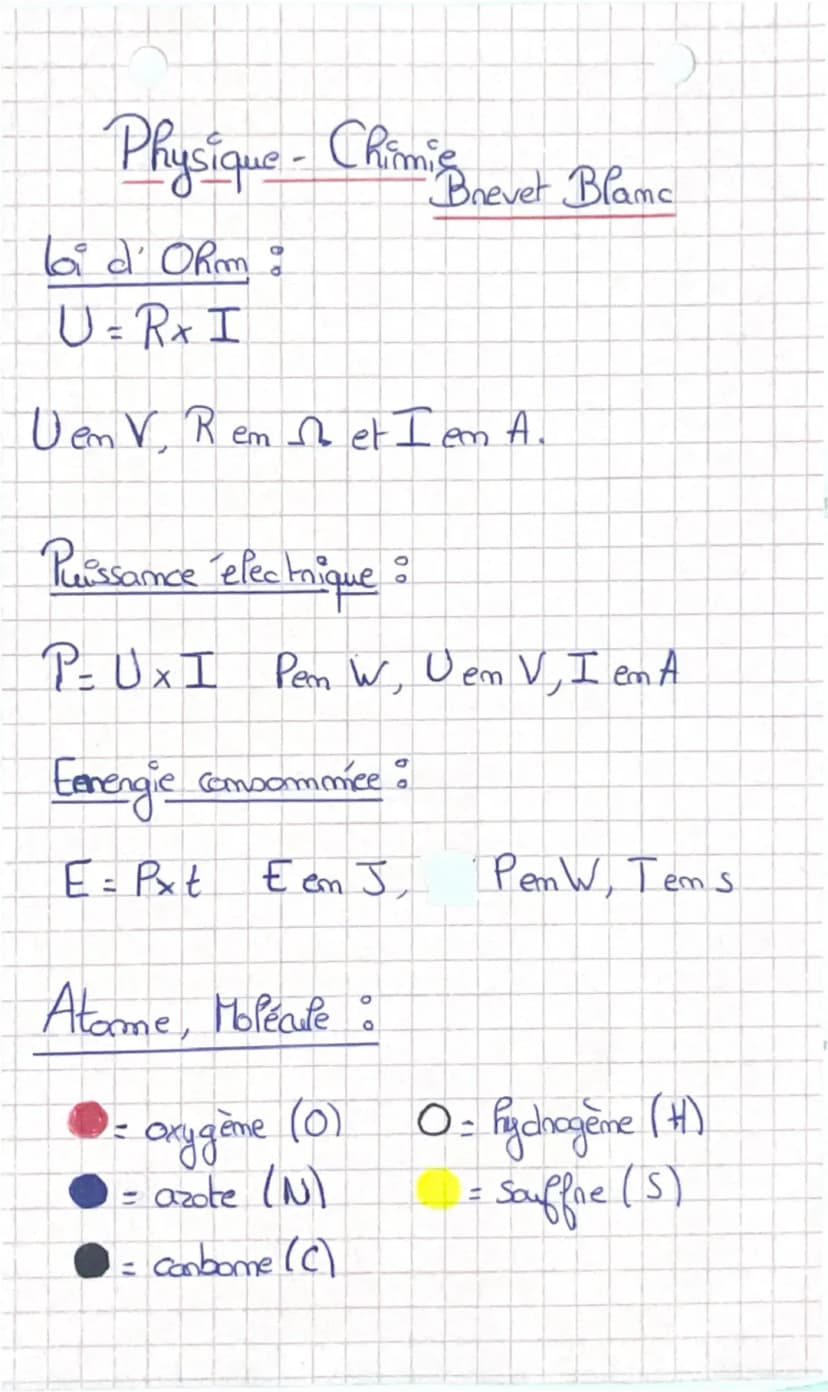 Physique - Chimie
Brevet Blanc
Loi d'Ohm :
U = R x I
U en V, R en Ω et I en A.
Puissance électrique :
P = U x I P en W, U en V, I en A
Eenergie consommée :
E = P x t E en J, P en W, T en s
Atome, Molécule :
= oxygène (O) = hydrogène (H)
= azote (N) = Souffre (S)
= carbone (C)